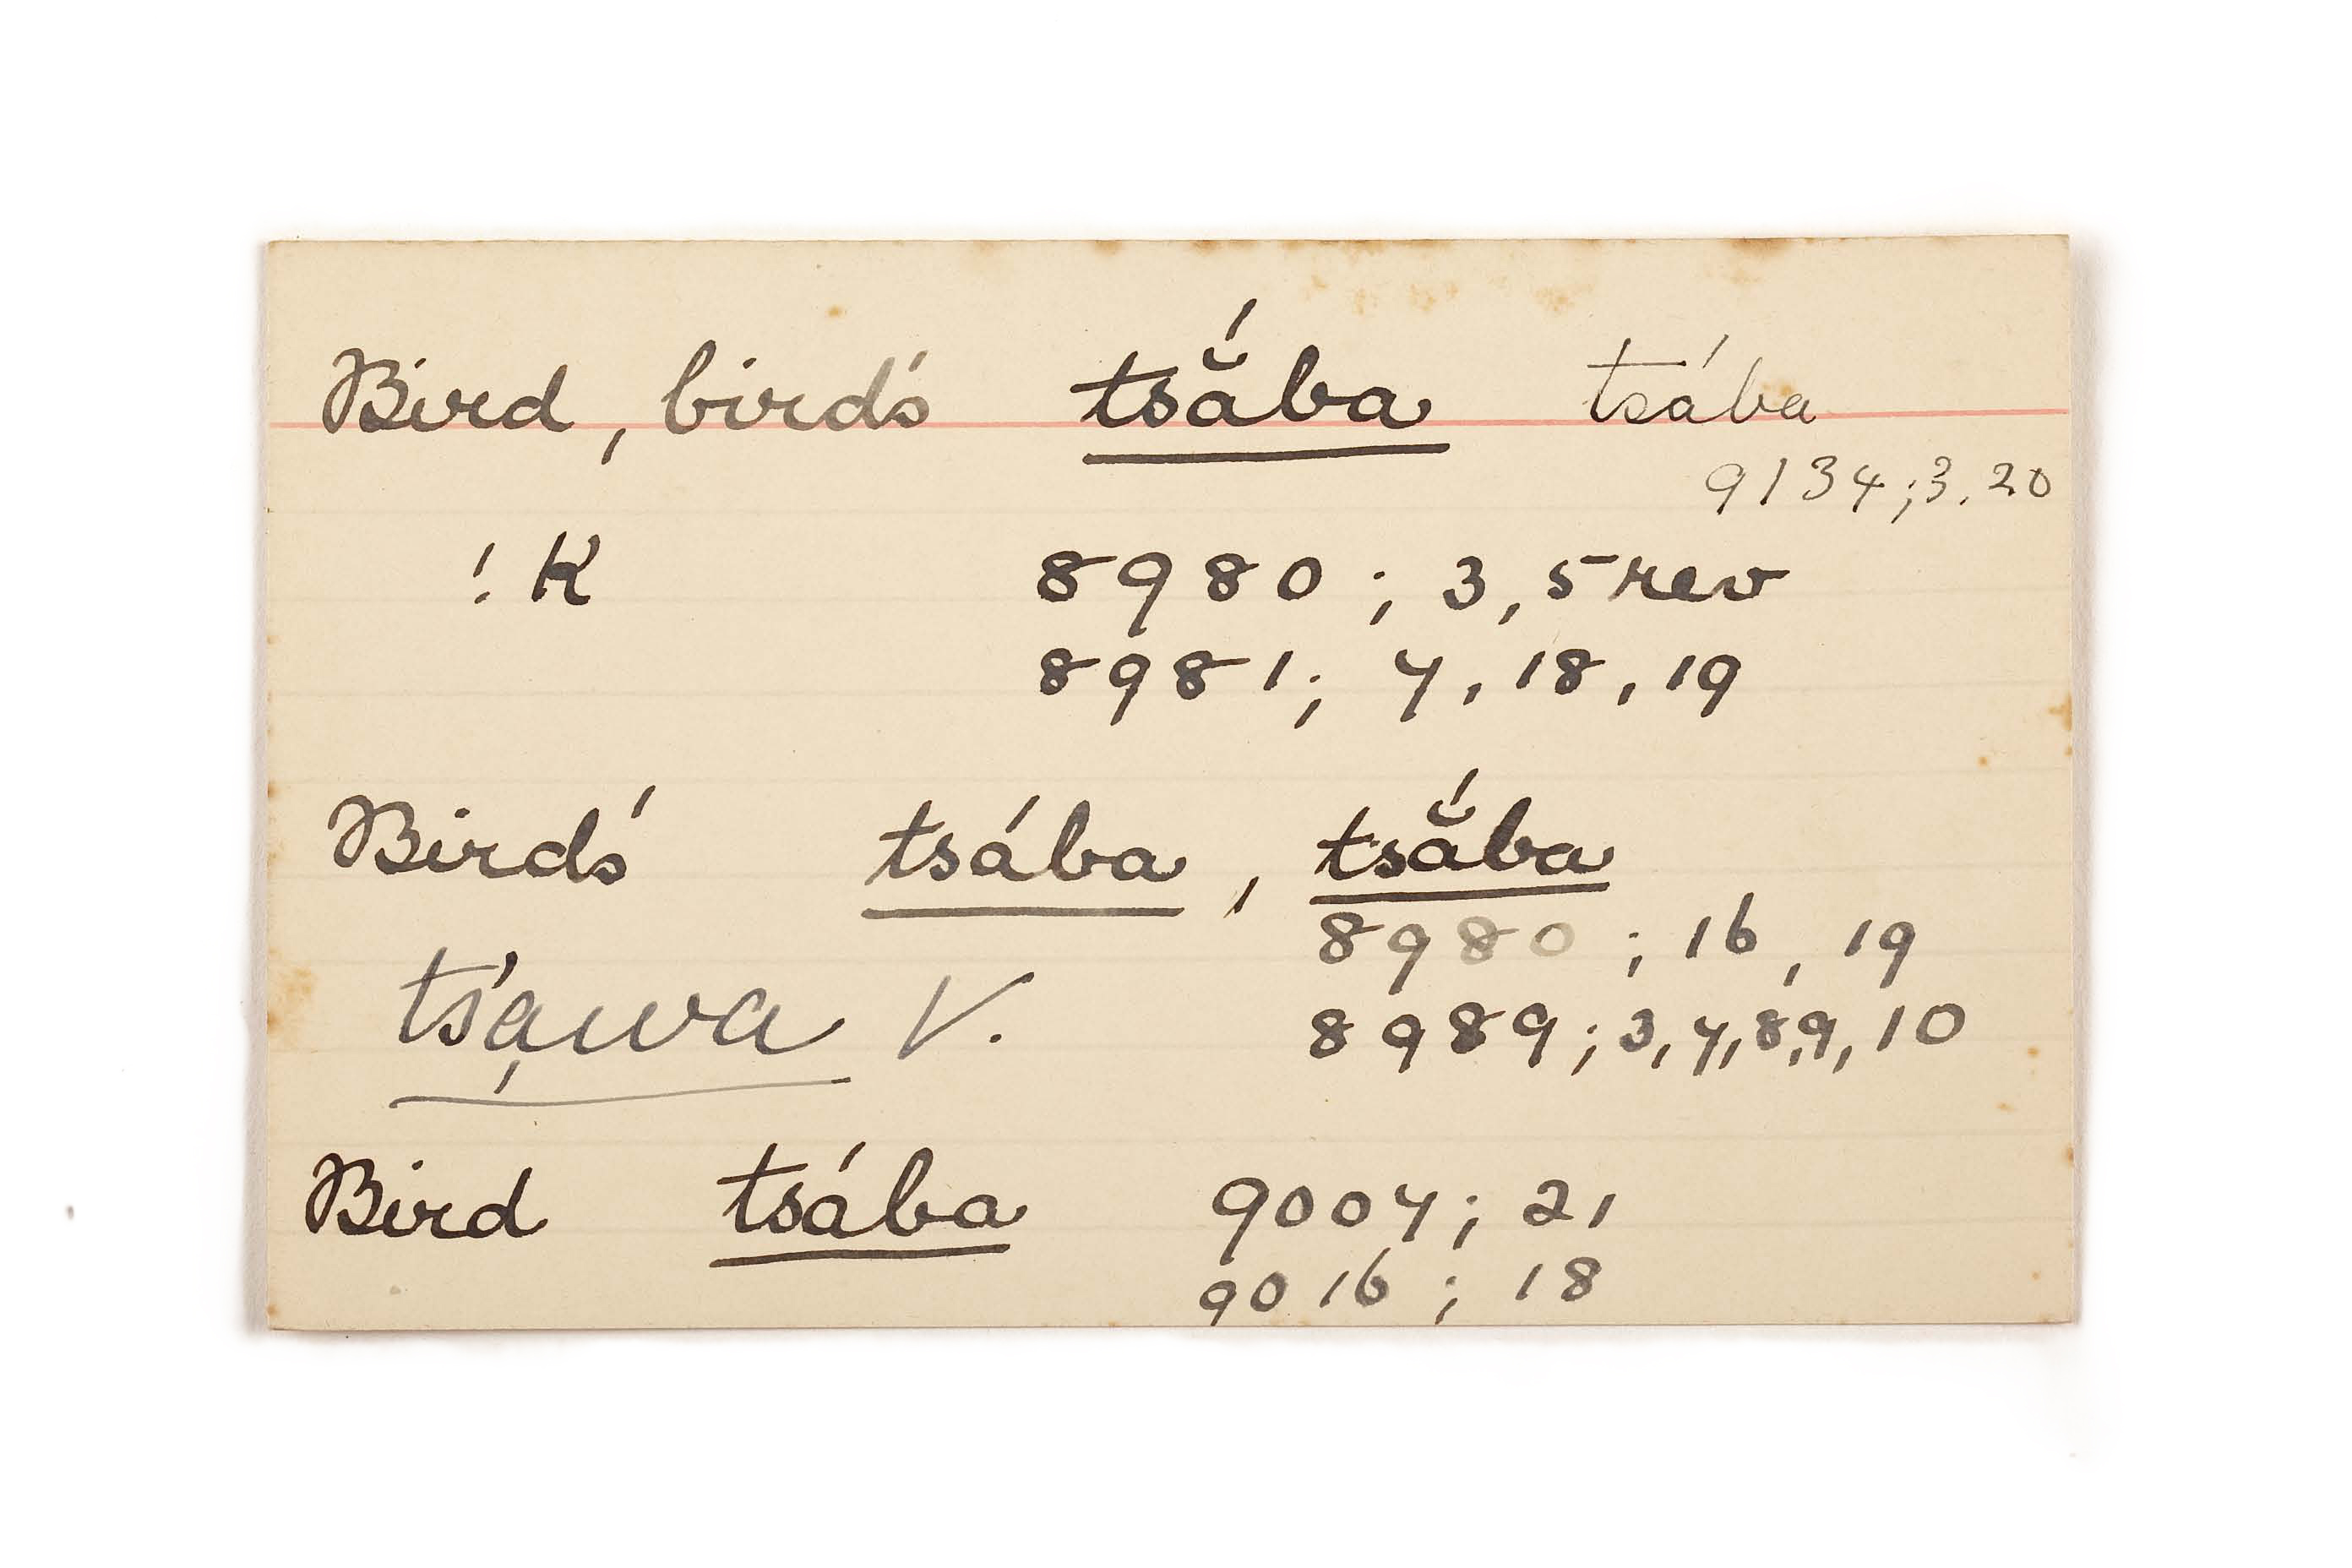 Bird, birds tsắba tsába
9134; 3, 20
!K 8980; 3, 5 rev
8981; 4, 18, 19
Birds tsába, tsắba
8980; 16, 19
tsá̦wa V. 8989; 3, 4, 8, 9, 10
Bird tsába 9004; 21
9016; 18